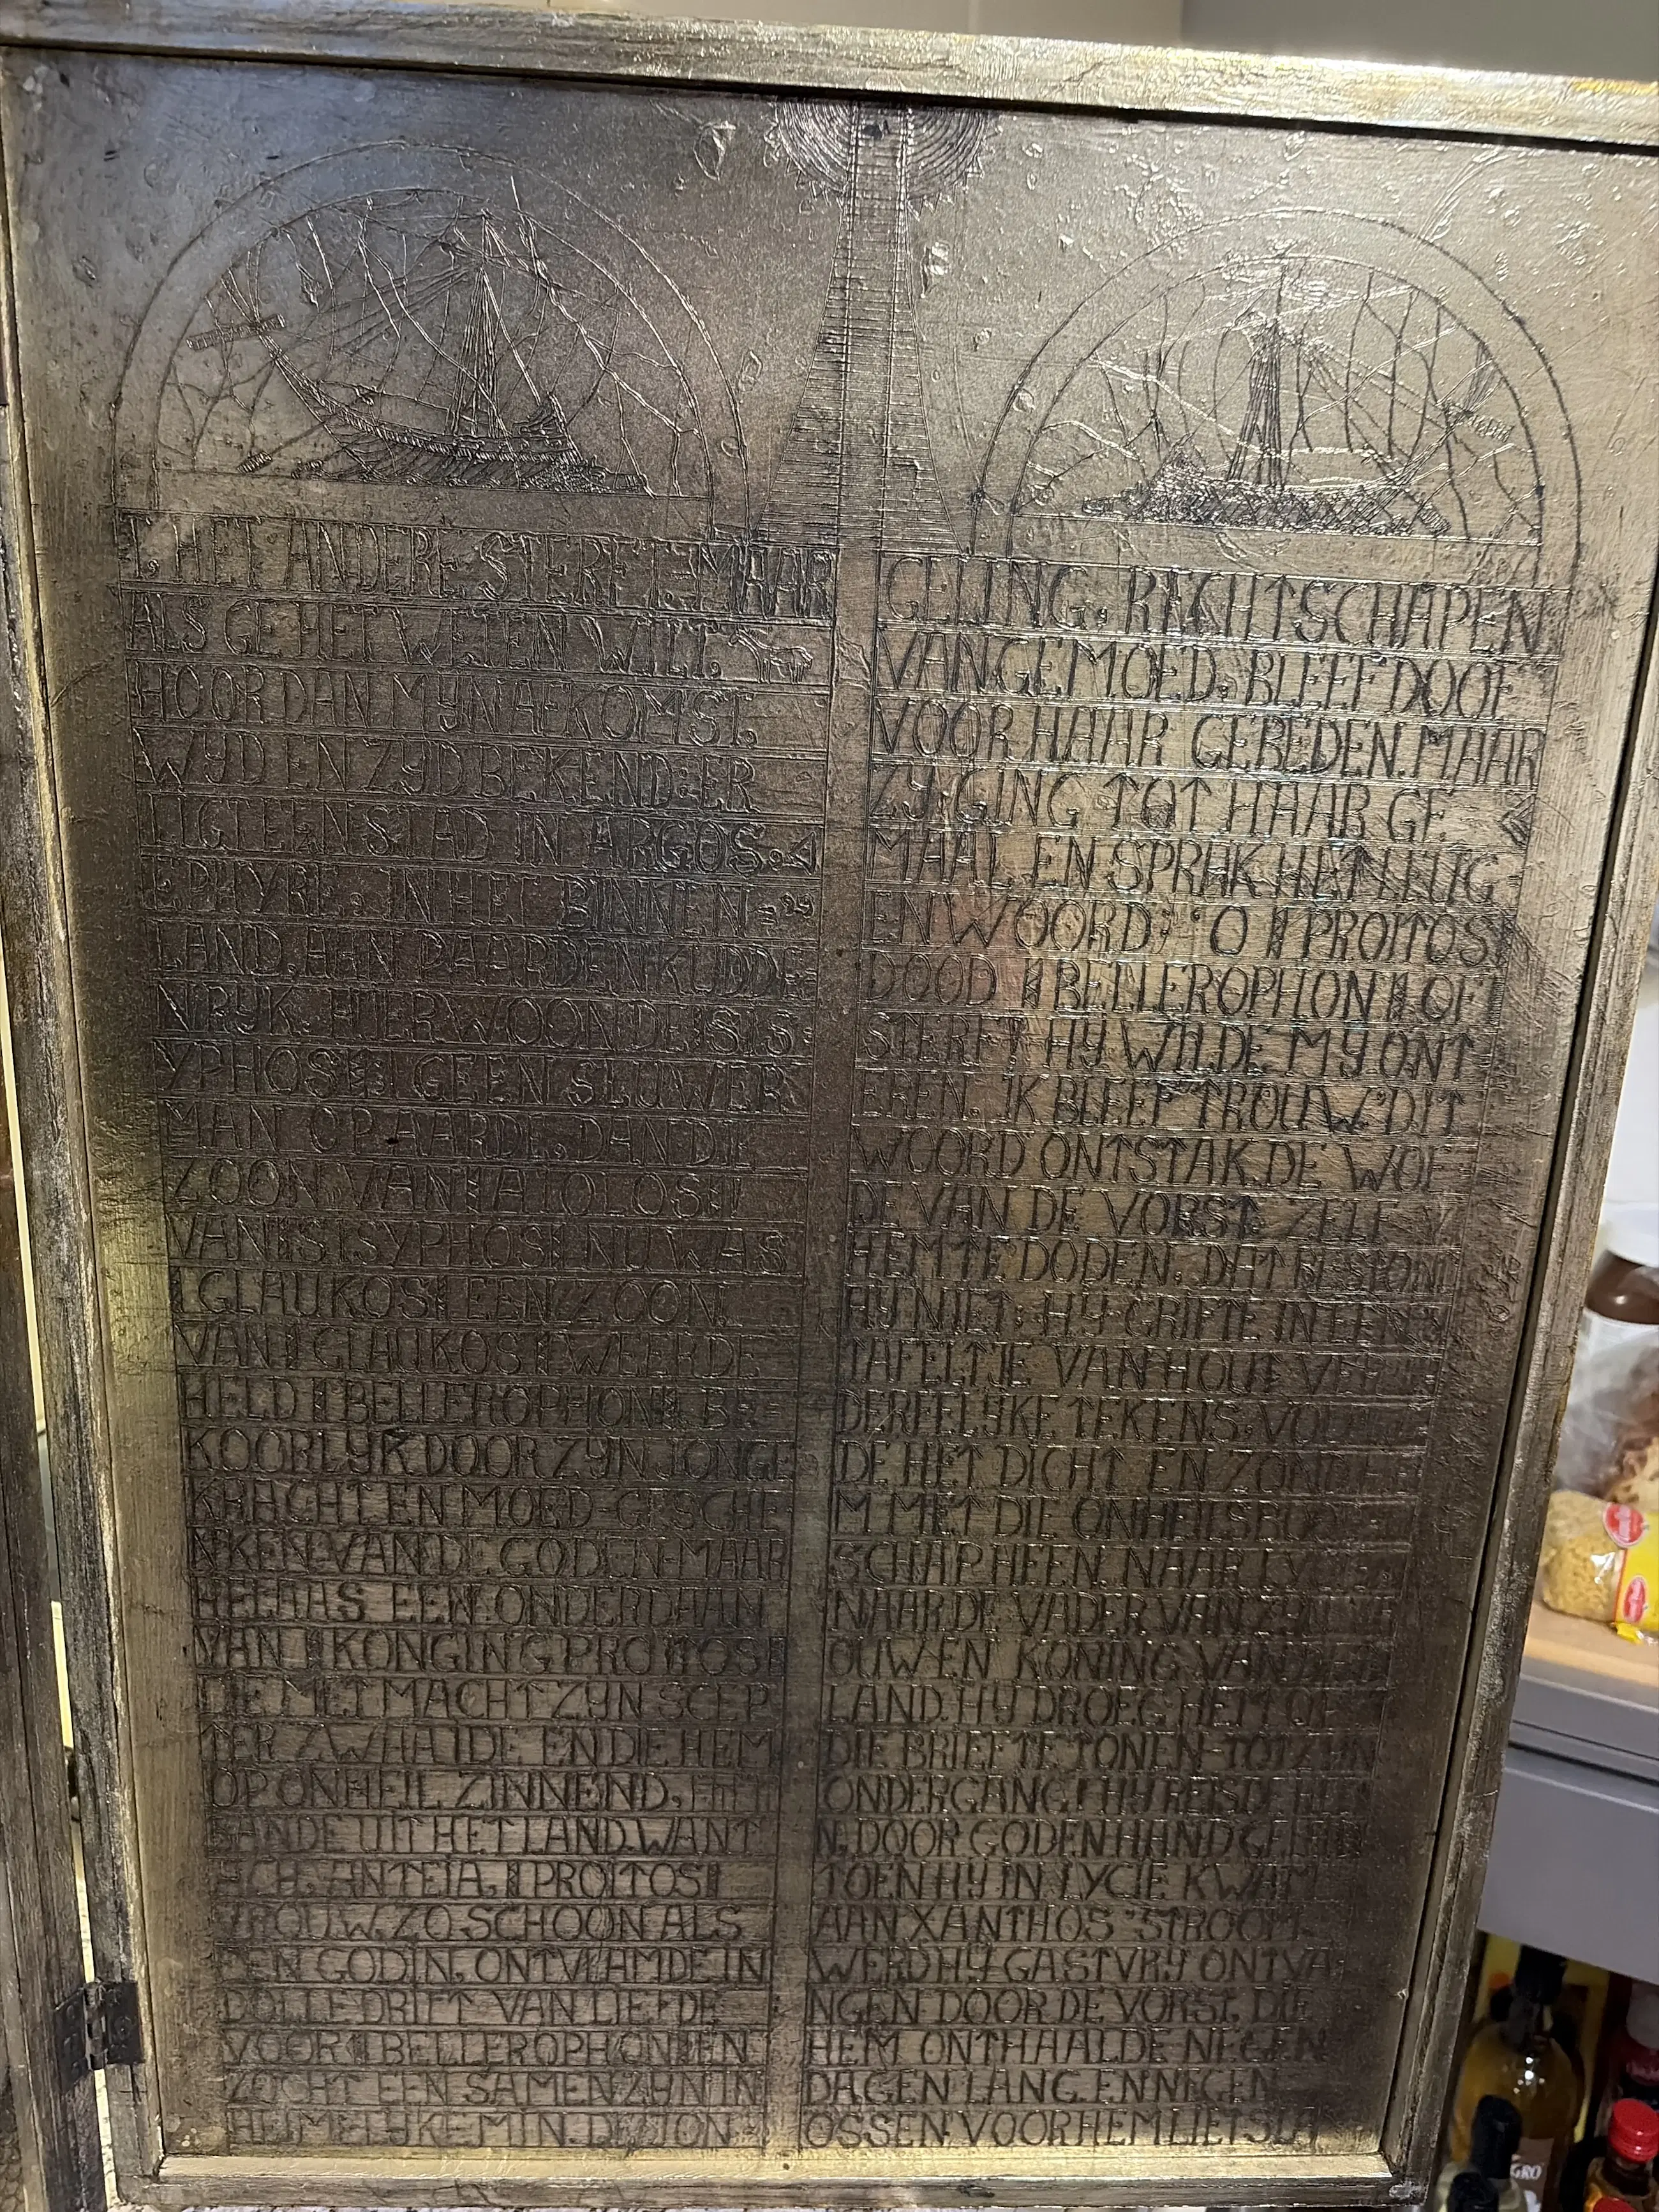 T, HET ANDERE STERFT. MAAR
ALS GE HET WETEN WILT,
HOOR DAN MYN AFKOMST,
WYD EN ZYD BEKEND: ER
LIGT EEN STAD IN ARGOS.
EPHYRE, IN HET BINNEN=
LAND, AAN PAARDENKUDDE
NRYK. HIER WOONDE SIS
YPHOS GEEN SLUWER
MAN OP AARDE, DAN DIE
ZOON VAN AIOLOS
VAN SISYPHOS NU WAS
GLAUKOS EEN ZOON.
VAN GLAUKOS WEER DE
HELD BELLEROPHON, BE-
KOORLYK DOOR ZYN JONGE
KRACHT EN MOED-GESCHE
NKEN VAN DE GODEN-MAAR
HELAAS EEN ONDERDAAN
VAN KONGING PROITOS
DIE MET MACHT ZYN SCEP
TER ZWAAIDE EN DIE HEM
OP ONHEIL ZINNEND,
BANDE UIT HET LAND. WANT
ACH, ANTEIA, PROITOS
VROUW, ZO SCHOON ALS
EEN GODIN, ONTVLAMDE IN
DOLLE DRIFT VAN LIEFDE
VOOR BELLEROPHON EN
ZOCHT EEN SAMENZYN IN
HEIMELYKE MIN. DE JON-
GELING, RECHTSCHAPEN
VAN GEMOED, BLEEF DOOF
VOOR HAAR GEBEDEN. MAAR
ZY GING TOT HAAR GE
MAAL EN SPRAK HET LEUG
ENWOORD: "O PROITOS
DOOD BELLEROPHON OF
STERFT HY WILDE MY ONT
EREN. IK BLEEF TROUW." DIT
WOORD ONTSTAK DE WOE
DE VAN DE VORST. ZELF
HEM TE DODEN, DAT BESTOND
HY NIET: HY GRIFTE IN EEN
TAFELTJE VAN HOUT VER
DERFELYKE TEKENS, VOUW
DE HET DICHT EN ZOND HE
M MET DIE ONHEILSBOOD
SCHAP HEEN NAAR LYCIE,
NAAR DE VADER VAN ZYN VR
OUW EN KONING VAN HET
LAND. HY DROEG HEM OP
DIE BRIEF TE TONEN-TOT ZYN
ONDERGANG! HY REISDE HEE
N, DOOR GODENHAND GELEID
TOEN HY IN LYCIE KWAM
AAN XANTHOS' STROOM,
WERD HY GASTVRY ONTVA
NGEN DOOR DE VORST, DIE
HEM ONTHAALDE NEGEN
DAGEN LANG EN NEGEN
OSSEN VOOR HEM LIET SLA